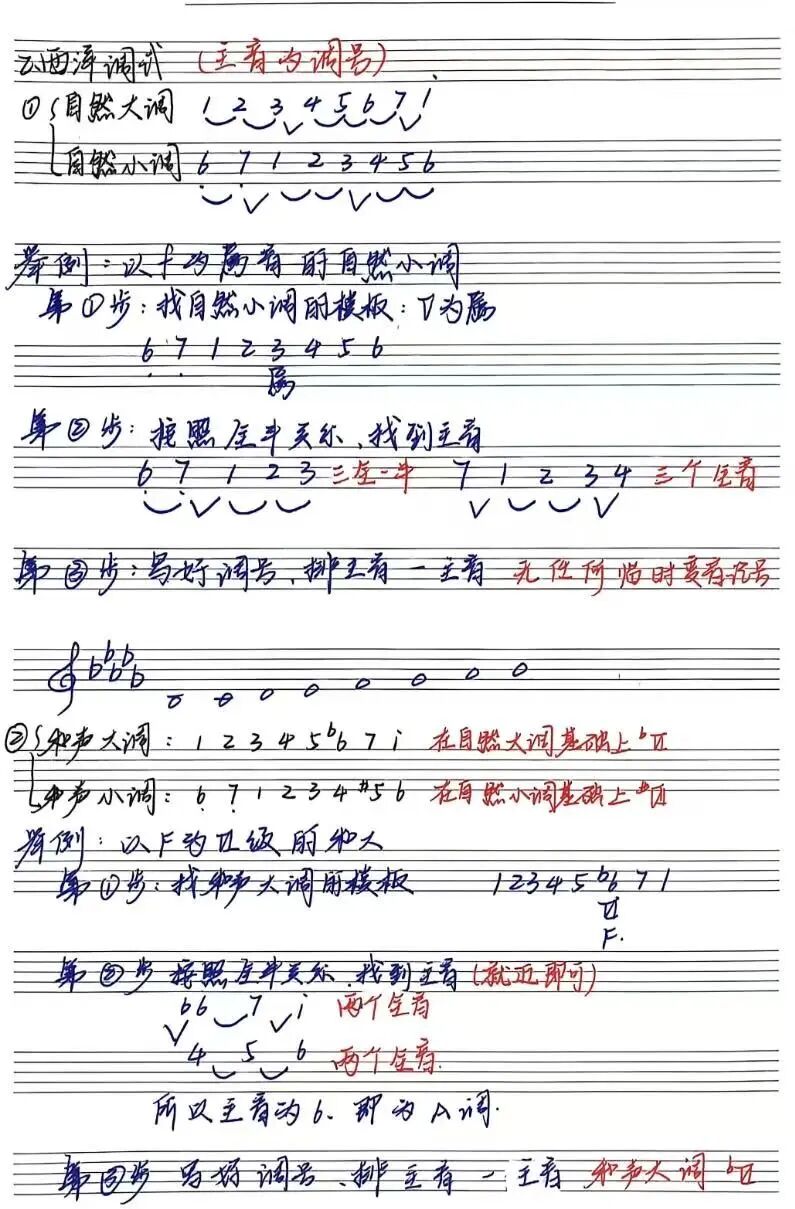 二、西洋调式 (主音与调号)
① 自然大调 1 2 3 4 5 6 7 i
自然小调 6 7 1 2 3 4 5 6
举例：以 f 为属音的自然小调
第①步：找自然小调的模板：V为属
6 7 1 2 3 4 5 6
属
第②步：按照全半关系、找到主音
6 7 1 2 3 三全一半 7 1 2 3 4 三个全音
第③步：写好调号、排主音—主音 无任何临时变音记号
② 和声大调：1 2 3 4 5 b6 7 i 在自然大调基础上 bVI
和声小调：6 7 1 2 3 4 #5 6 在自然小调基础上 #VII
举例：以 F 为 VI 级的和大
第①步：找和声大调的模板 1 2 3 4 5 b6 7 1
VI
F.
第②步 按照全半关系、找到主音 (就近即可)
b6 7 i 两个全音
4 5 6 两个全音.
所以主音为 6、即为 A 调.
第③步 写好调号、排主音—主音 和声大调 bVI